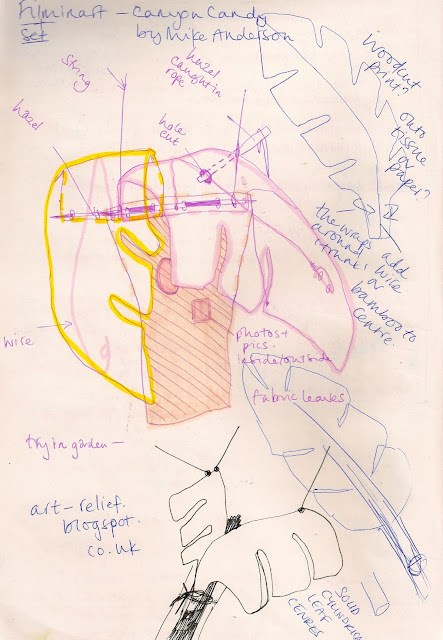 Filminart – Canyon Candy
Set by Mike Anderson
string
hazel
caught in
rope
hazel
hole
cut
woodcut
print?
onto
tissue
or
paper?
the wraps
around
trunk,
add
wire
or
bamboo to
centre
wire
photos +
pics.
inside/outside
fabric leaves
try in garden —
art-relief.
blogspot.
co.uk
SOLID
CYLINDRICAL
LEAF
CENTRES